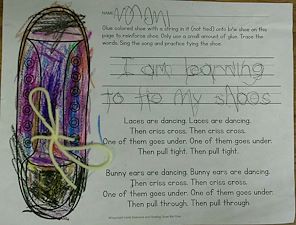 NAME
Glue colored shoe with a string in it (not tied) onto b/w shoe on this
page to reinforce shoe. Only use a small amount of glue. Trace the
words. Sing the song and practice tying the shoe.
I am learning
to tie my shoes
Laces are dancing. Laces are dancing.
Then criss cross. Then criss cross.
One of them goes under. One of them goes under.
Then pull tight. Then pull tight.
Bunny ears are dancing. Bunny ears are dancing.
Then criss cross. Then criss cross.
One of them goes under. One of them goes under.
Then pull through. Then pull through.